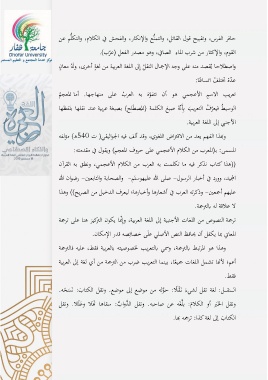 جامعة ذي قار
حافر الفرس، وتقبيح قول القائل، والمنعُ والإنكار، والفحش في الكلام، والتكلُّم عن
القوم، والإكثار من شرب الماء الصافي، وهو مصدر الفعل (عَرَّب).
واصطلاحا يُقصد منه على وجه الإجمال النقلُ إلى اللغة العربية من لغةٍ أخرى، ولهُ معانٍ
عدّة مختلفة أهمّها:
تعريب الاسم الأعجمي هو أن تتفوّه به العرب على منهاجها. أما المعجمُ
الوسيطُ فيعرّف التعريب بأنّه صبغ الكلمة (المصطلح) بصبغة عربية عند نقلها بلفظها
الأجنبي إلى اللغة العربية.
وبهذا الفهم يعد من الاقتراض اللغوي، وقد ألف فيه الجواليقي( ت 540ه) مؤلفه
المسمى: بـ(المعرب من الكلام الأعجمي على حروف المعجم) ويقول في مقدمته:
((هذا كتاب نذكر فيه ما تكلمت به العرب من الكلام الأعجمي، ونطق به القرآن
المجيد، وورد في أخبار الرسول- صلى الله عليه وسلم- والصحابة والتابعين- رضوان الله
عليهم أجمعين- وذكرته العرب في أشعارها وأخبارها؛ ليعرف الدخيل من الصريح)) وهذا
لا علاقة له بالترجمة.
ترجمة النصوص من اللغات الأجنبية إلى اللغة العربية، وإنّما يكون التركيز هنا على ترجمة
المعاني بما يكفل أن يحافظ النص الأصلي على خصائصه قدر الإمكان.
وهذا هو المرتبط بالترجمة، وسمي بالتعريب لخصوصيته بالعربية فقط، عليه فالترجمة
أعمّ؛ لأنها تشتمل اللغات جميعًا، بينما التعريب ضرب من الترجمة من أي لغة إلى العربية
فقط.
النقل: لغة نقل الشيء نَقْلًا: حوَّله من موضع إلى موضع. ونقل الكتابَ: نَسَخَه.
ونقل الخبرَ أو الكلامَ: بلَّغه عن صاحبه. ونقل الدَّوابَّ: سقاها نَهلًا وعَلَلًا. ونقل
الكتابَ إلى لغة كذا: ترجمه بها.